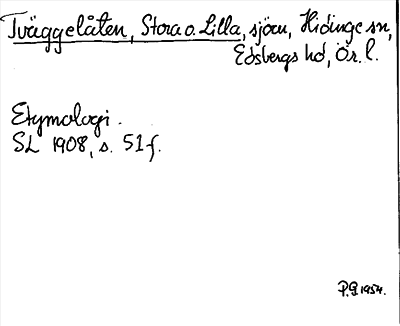 Tväggelåten, Stora o. Lilla, sjöar, Hidinge sn,
Edsbergs hd, Ör. l.
Etymologi.
SL 1908, s. 51 f.
P.G. 1954.